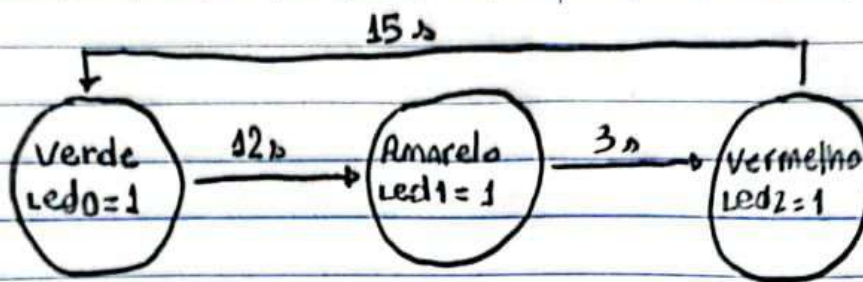 15 s
Verde
Led0=1
12s
Amarelo
Led1=1
3s
Vermelho
Led2=1